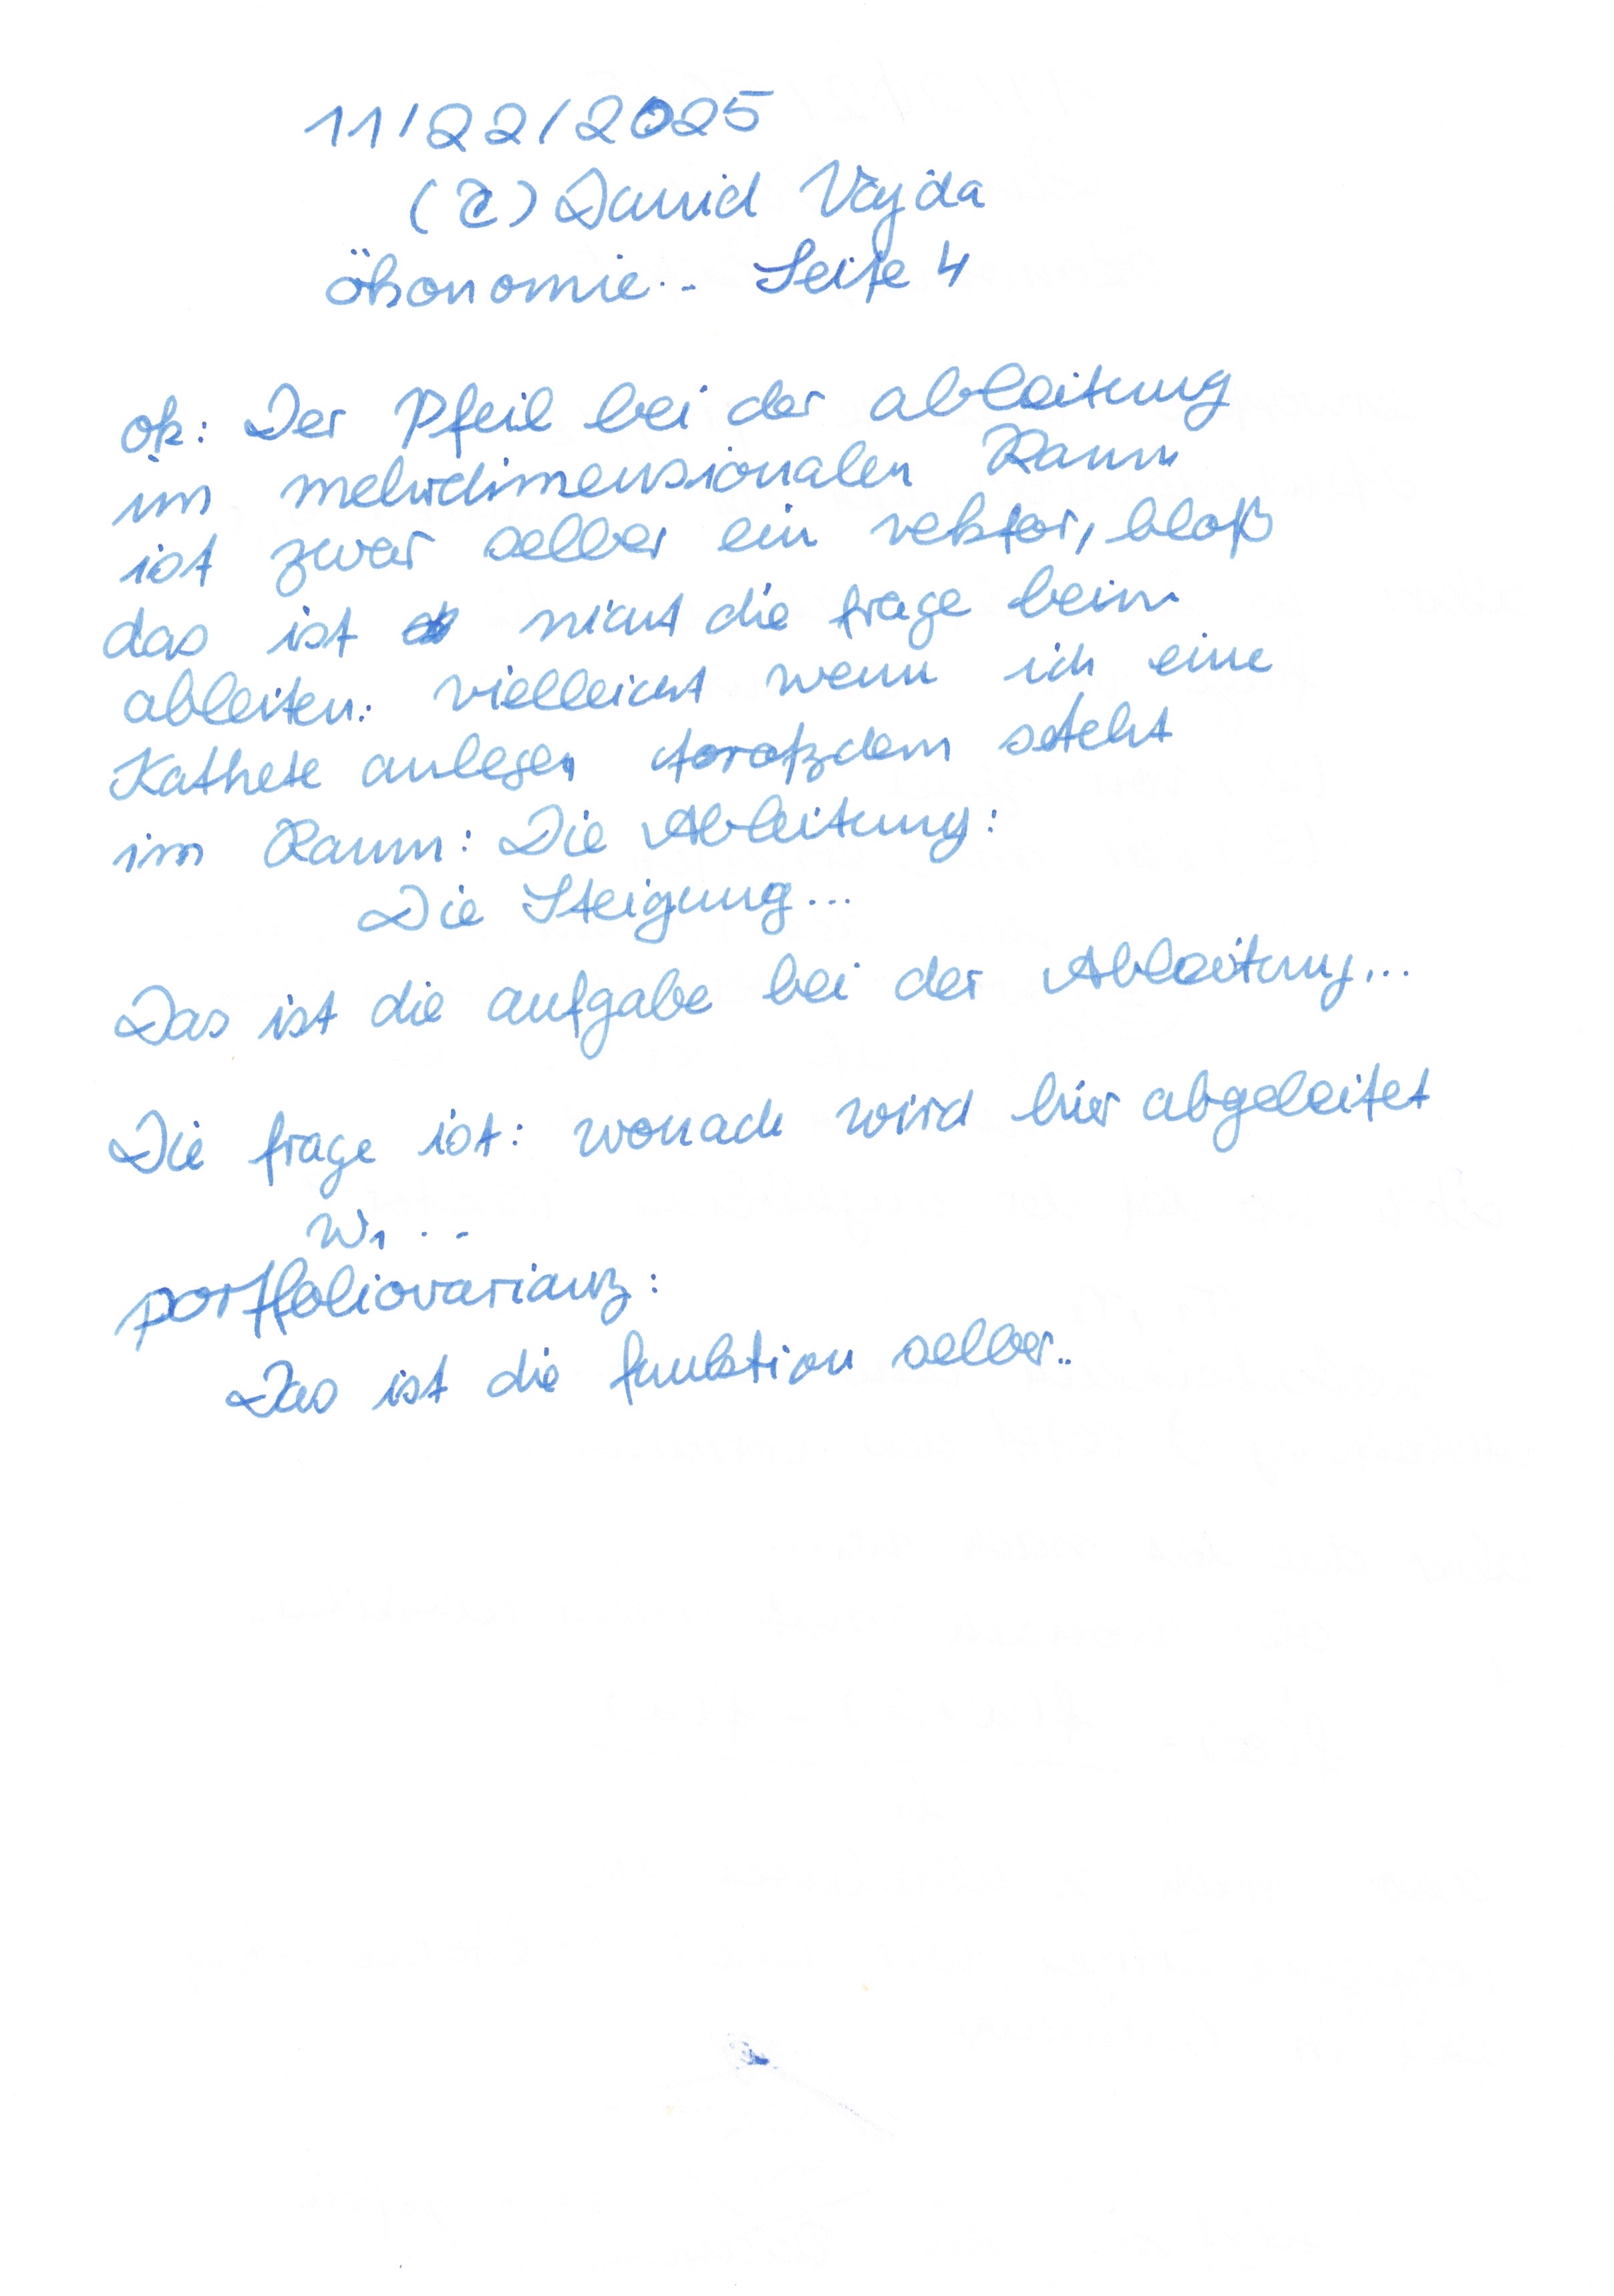 11/22/2025
(C) David Vajda
ökonomie.. Seite 4
ok: Der Pfeil bei der ableitung
im mehrdimensionalen Raum
ist zwar selber ein vektor, bloß
das ist nicht die frage beim
ableiten. vielleicht wenn ich eine
Kathete anlege, torotzdem steht
im Raum: Die Ableitung:
Die Steigung...
Das ist die aufgabe bei der Ableitung...
Die frage ist: wonach wird hier abgeleitet
w1 ...
portfoliovarianz:
Das ist die funktion selber..